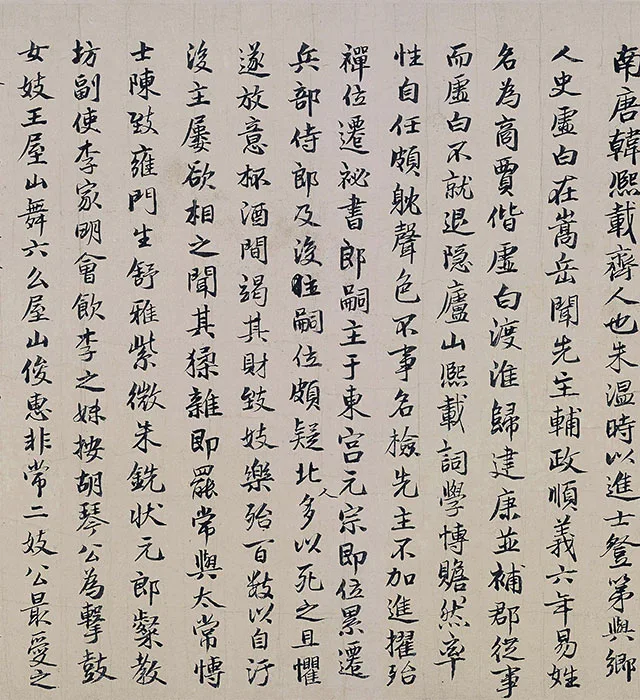 南唐韓熙載齊人也朱温時以進士登第與鄉
人史虛白在嵩岳聞先主輔政順義六年易姓
名為商賈偕虛白渡淮歸建康並補郡從事
而虛白不就退隐廬山熙載詞學博贍然率
性自任頗躭聲色不事名檢先主不加進擢殆
禪位遷祕書郎嗣主于東宮元宗即位累遷
兵部侍郎及後主嗣位頗疑北人多以死之且懼
遂放意杯酒間竭其財致妓樂殆百數以自汙
後主屢欲相之聞其猱雜即罷常與太常博
士陳致雍門生舒雅紫微朱銑狀元郎粲教
坊副使李家明會飲李之妹按胡琴公為擊鼓
女妓王屋山舞六么屋山俊惠非常二妓公最愛之